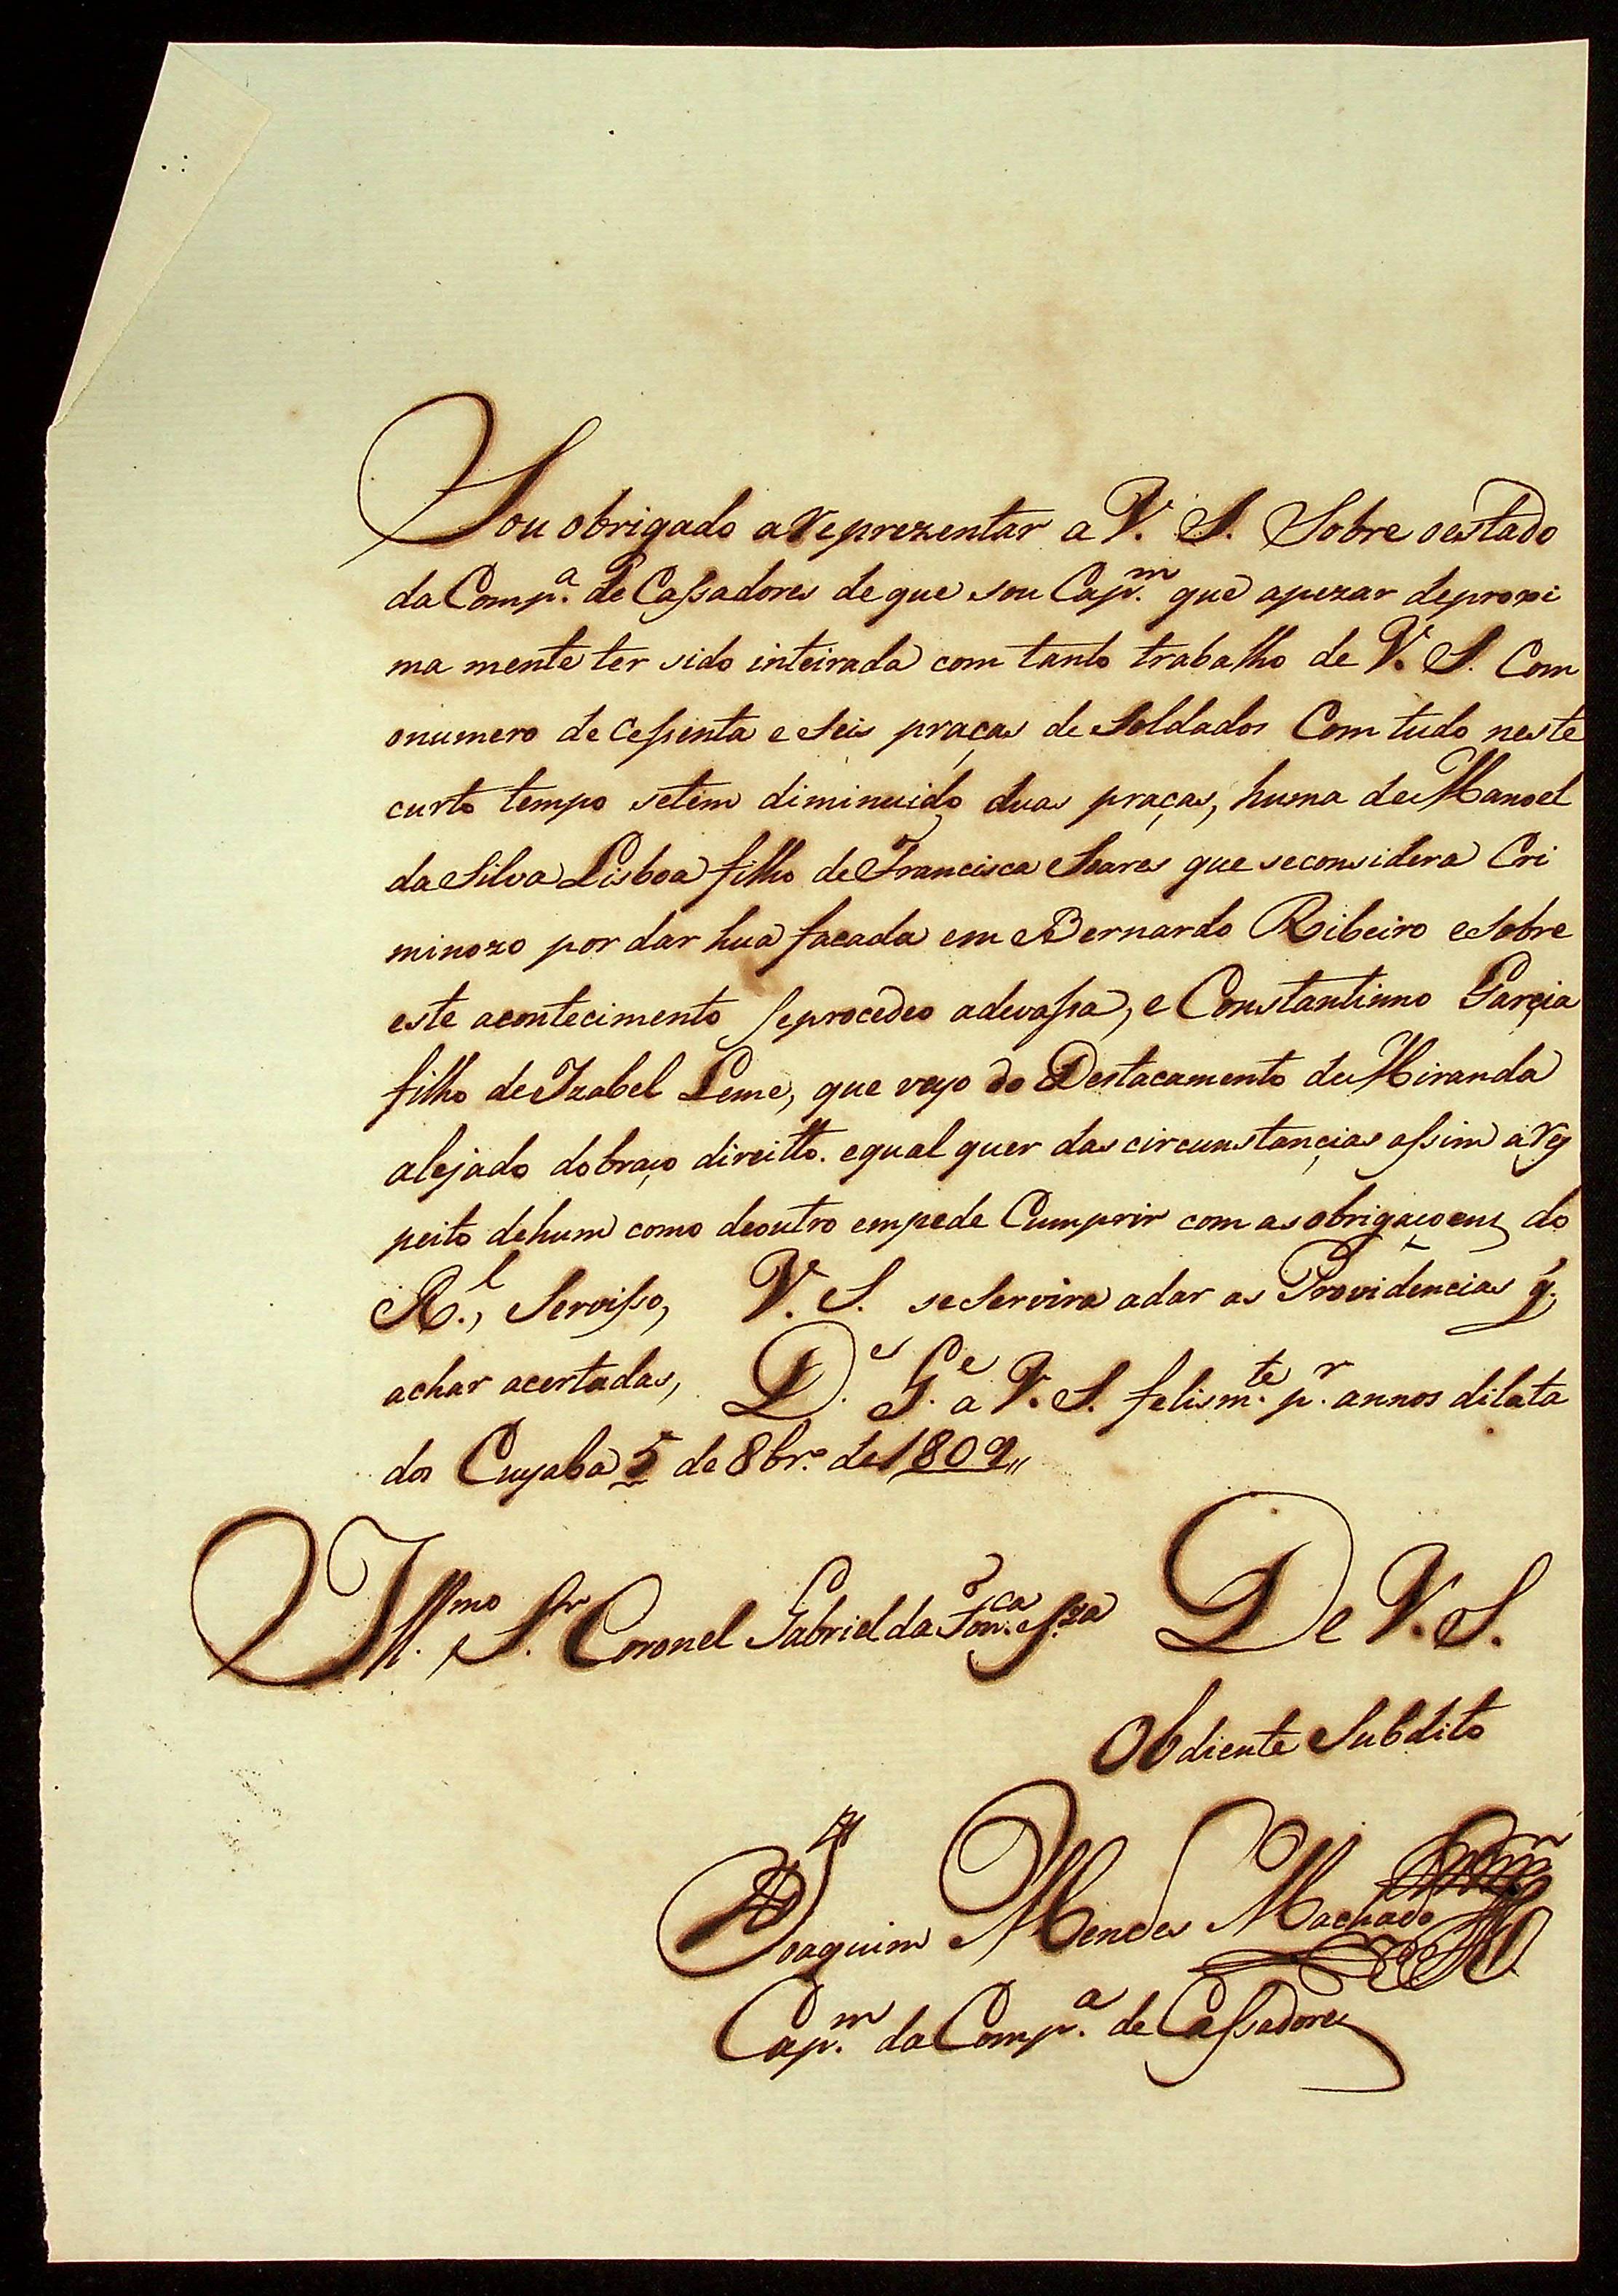 Sou obrigado a reprezentar a V. S. Sobre oestado
da Comp.ª de Cassadores de que sou Cap.m que apezar deproxi
ma mente ter sido inteirada com tanto trabalho de V. S. Com
onumero de cessenta e Seis praças de Soldados Com tudo neste
curto tempo setem diminuido duas praças, huma de Manoel
da Silva Lisboa filho de Francisca Soares que seconsidera Cri
minozo por dar hua facada em Bernardo Ribeiro esobre
este acontecimento seprocedeo adevassa, e Constantinno Garçia
filho de Izabel Leme, que veyo do Destacamento de Miranda
alejado dobraço direitto. equal quer das circunstançias assim a res
peito dehum como deoutro empede Cumprir com as obrigaçoens do
R.l, Servisso, V. S. seServira adar as Providencias q.
achar acertadas, D.es G.e a V. S. felism.te p.r annos dilata
dos Cuyaba 5 de 8br.o de 1809,,
Ill.mo S.r Coronel Gabriel da Fon.ca S.za De V. S.
Obdiente Subdito
Joaquim Mendes Machado
Cap.m da Comp.ª de Cassadores